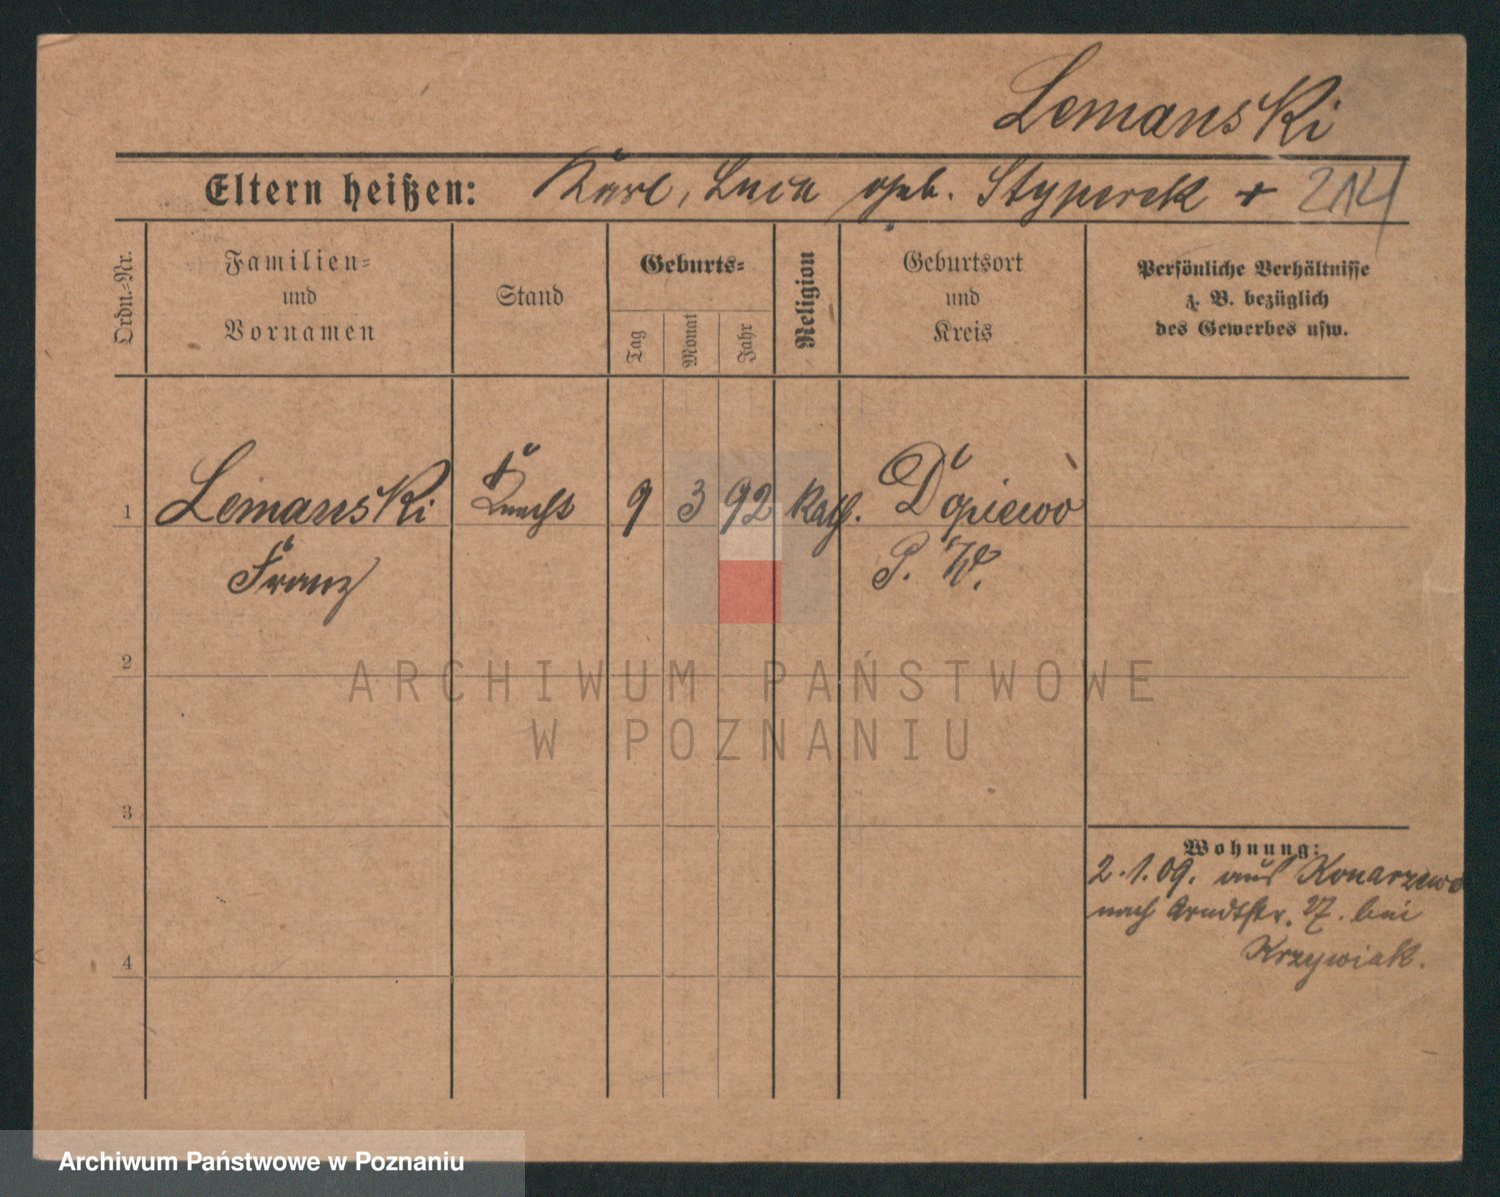 Lemanski
Eltern heißen: Karl, Lucia geb. Styperek + 214
Ordn.-Nr.
Familien-
und
Vornamen
Stand
Geburts-
Tag
Monat
Jahr
Religion
Geburtsort
und
Kreis
Persönliche Verhältnisse
z. B. bezüglich
des Gewerbes usw.
1 Lemanski Knecht 9 3 92 Kath. Dopiewo
Franz P. W.
2
ARCHIWUM PAŃSTWOWE
W POZNANIU
3
Wohnung:
2.1.09. aus Konarzewo
nach Arndtstr. 27. bei
Krzywiak.
4
Archiwum Państwowe w Poznaniu